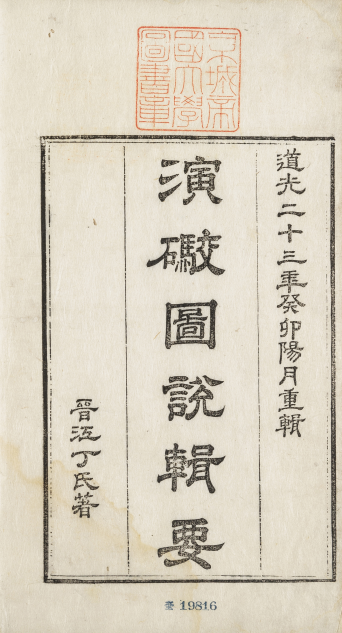 京城帝
國大學
圖書章
道光二十三年癸卯陽月重輯
演礮圖說輯要
晉江丁氏著
奎 19816